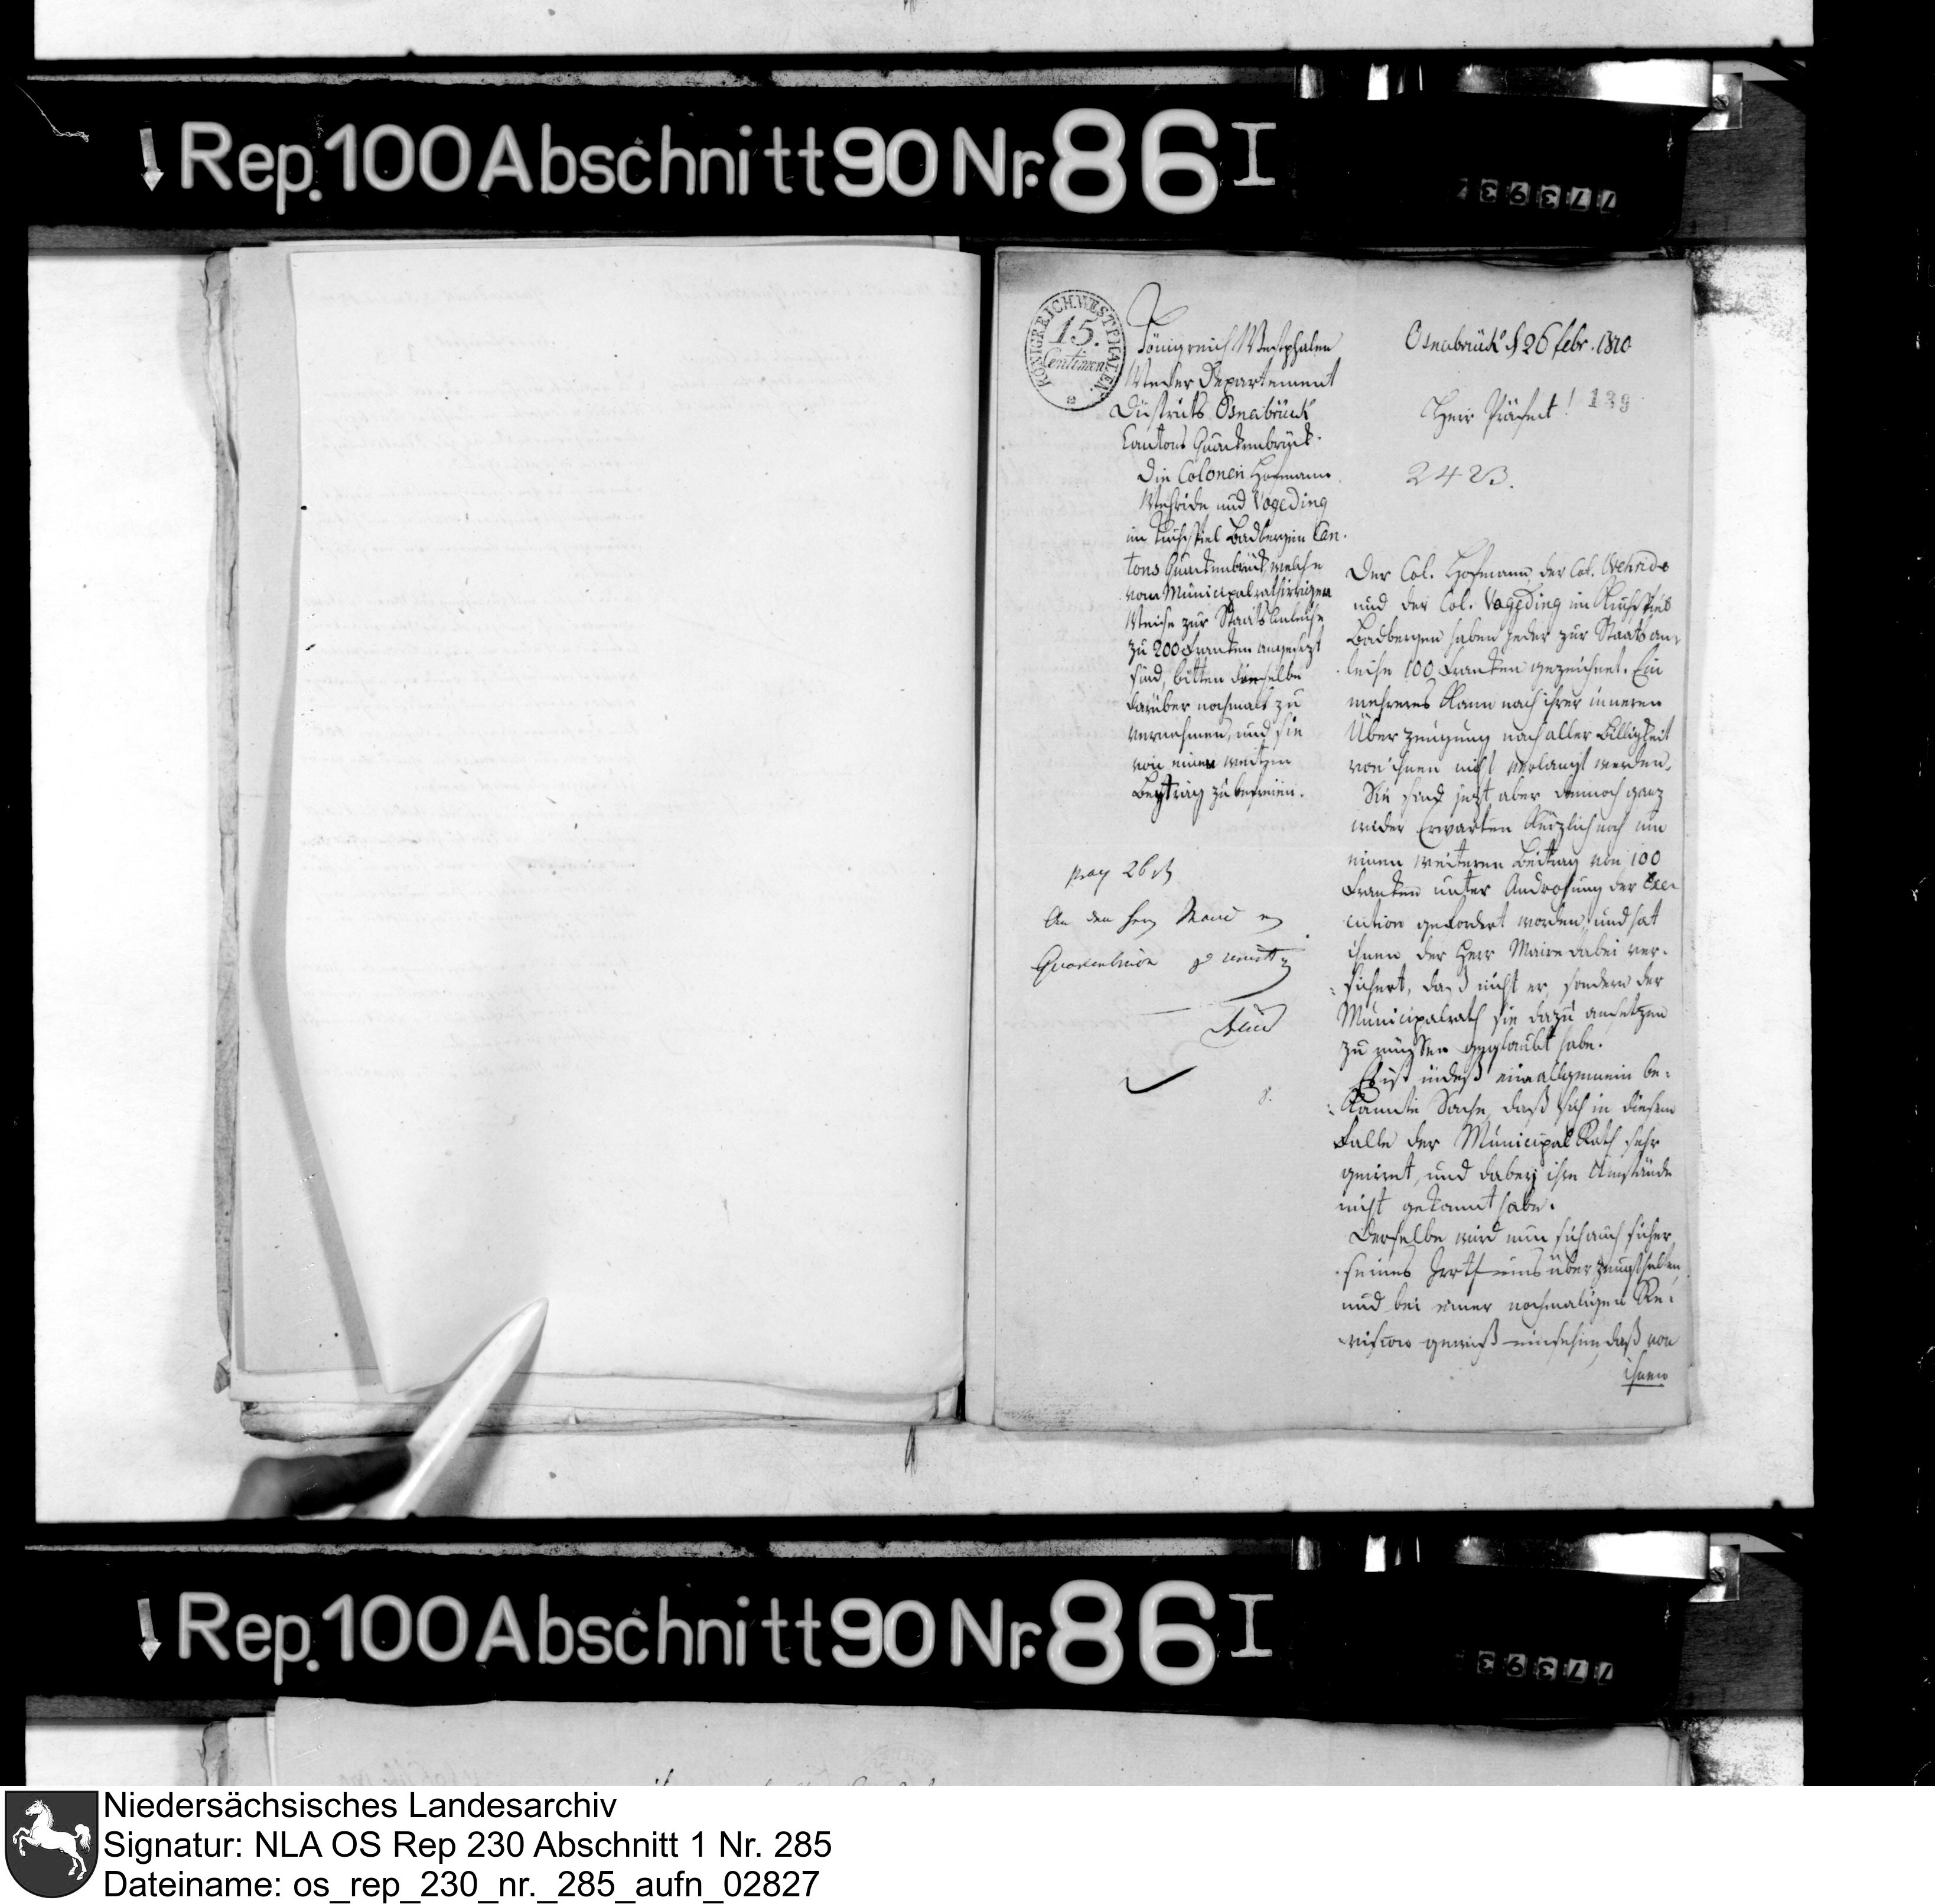 Rep. 100 Abschnitt 90 Nr. 86 I
77393
KÖNIGREICH WESTPHALEN
15.
Centimen
Königreich Westphalen
Weser Departement
Districts Osnabrück
Cantons Quackenbrück.
Die Colonen Hofmann
Wehride und Vageding
im Kirchspiel Badbergen Can-
tons Quackenbrück, welche
vom Municipalrath irriger
Weise zur Staats Anleihe
zu 200 Franken angesezt
sind, bitten dieselbe
darüber nochmals zu
vernehmen, und sie
von einem weitern
Beytrag zu befreien.
26
An den Herrn Maire
Quakenbrück
Osnabrück d 26 febr. 1810
Herr Präfect!
139
2423.
Der Col. Hofmann, der Col. Wehride
und der Col. Vageding im Kirchspiel
Badbergen haben jeder zur Staats an-
leihe 100 Franken gezeichnet. Ein
mehreres kann nach ihrer inneren
Überzeugung nach aller Billigkeit
von ihnen nicht verlangt werden.
Sie sind jezt aber dennoch ganz
wider Erwarten kürzlich noch um
einen weiteren Beitrag von 100
Franken unter Androhung der Exe-
cution gefordert worden, und hat
ihnen der Herr Maire dabei ver-
sichert, daß nicht er, sondern der
Municipalrath sie dazu ansetzen
zu müssen geglaubt habe.
Es ist indeß eine allgemein be-
kannte Sache, daß sich in diesem
Falle der Municipal Rath sehr
geirret, und dabey ihre Umstände
nicht gekannt habe.
Derselbe wird nun sich auch sicher
seines Irrthums überzeugt halten,
und bei einer nochmaligen Re-
vision gewiß einsehen, daß von
ihnen
Rep. 100 Abschnitt 90 Nr. 86 I
77393
Niedersächsisches Landesarchiv
Signatur: NLA OS Rep 230 Abschnitt 1 Nr. 285
Dateiname: os_rep_230_nr._285_aufn_02827